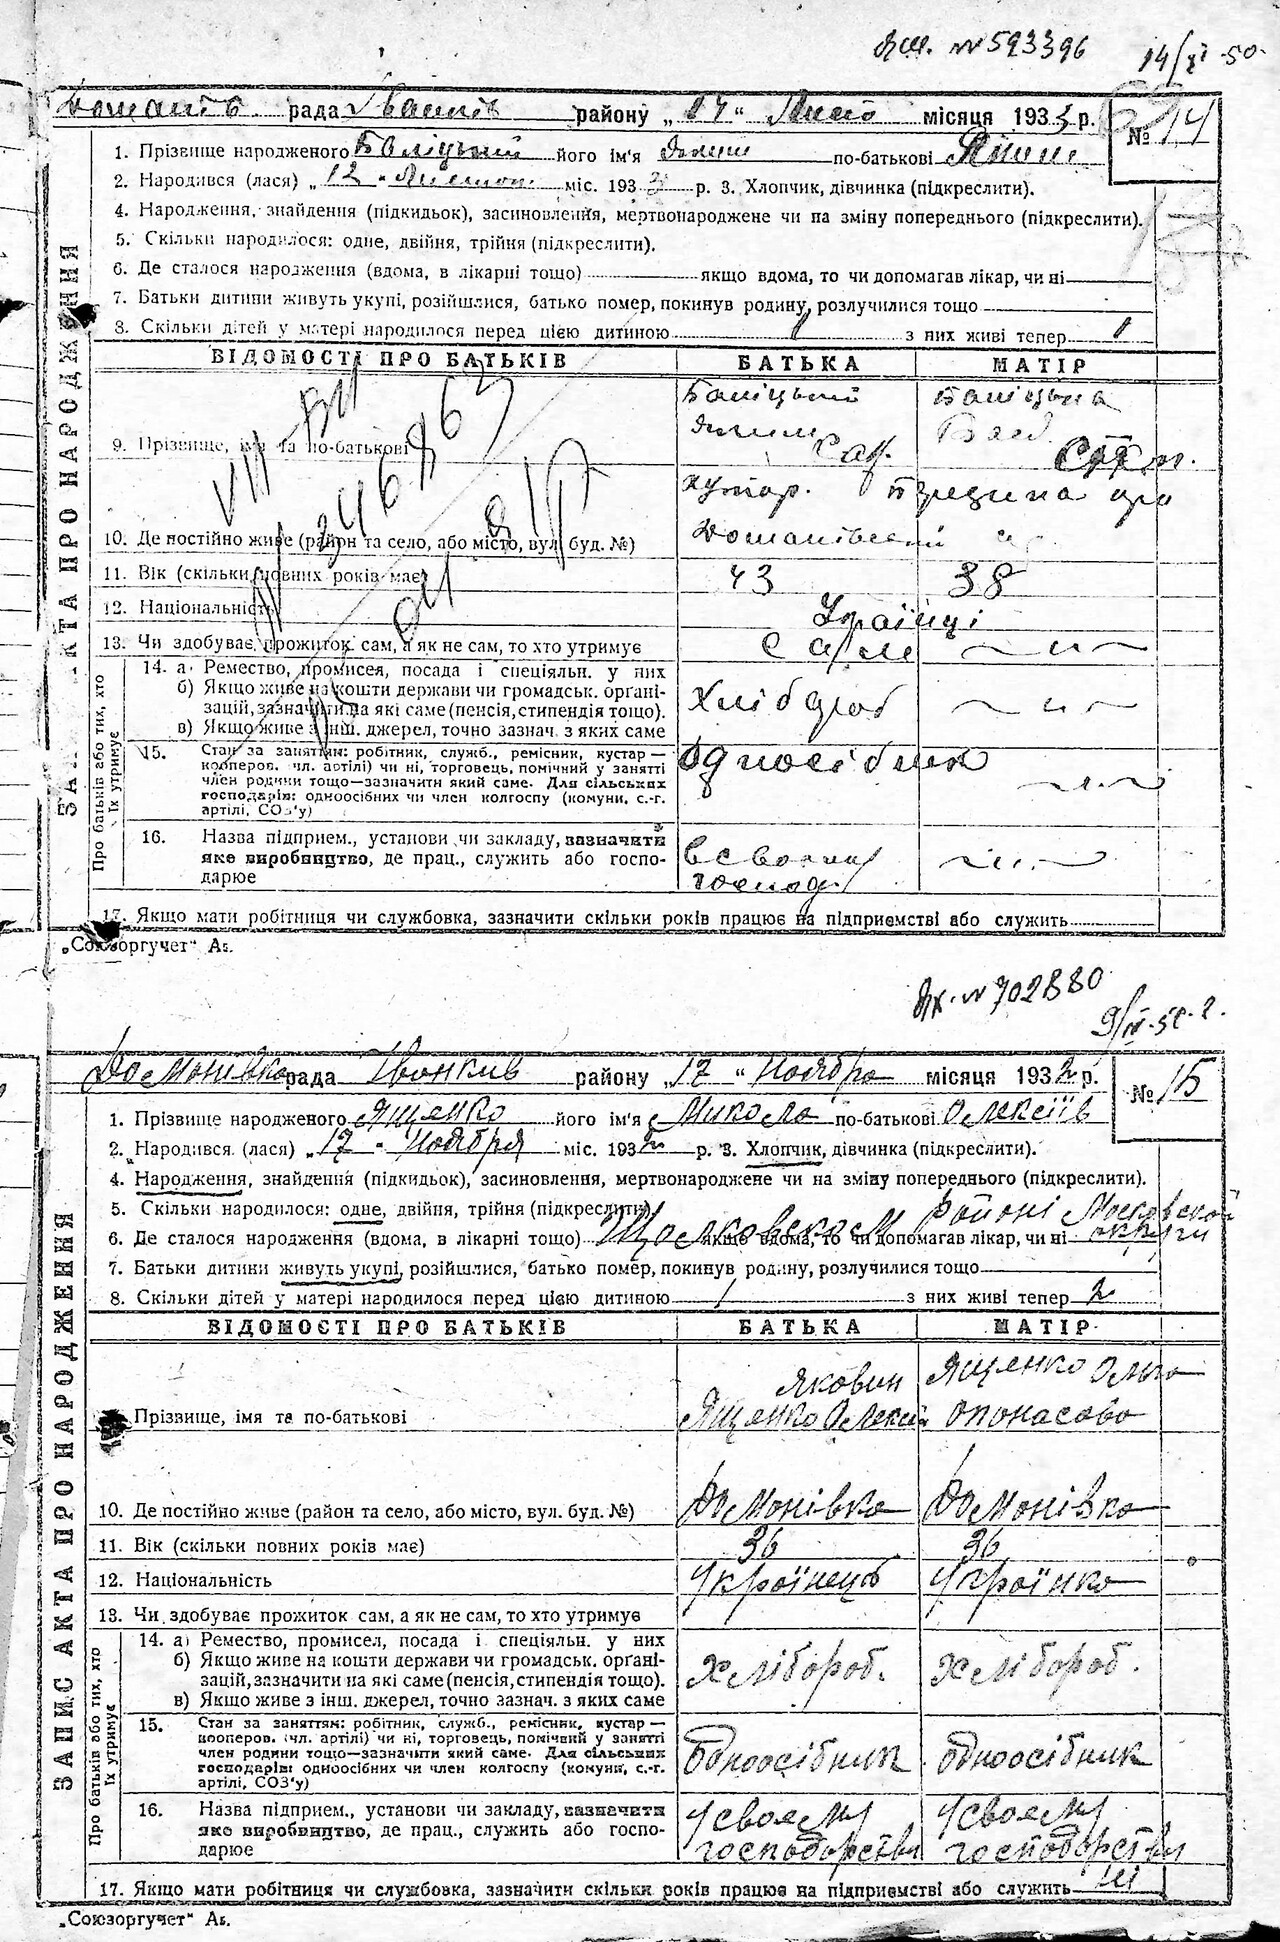 № 593396 14/XI-50.
рада району „17“ місяця 1933 р. № 14
1. Прізвище народженого Баліцький його ім'я по-батькові
2. Народився (лася) „12 міс. 193 р. 3. Хлопчик, дівчинка (підкреслити).
4. Народження, знайдення (підкидьок), засиновлення, мертвонароджене чи на зміну попереднього (підкреслити).
5. Скільки народилося: одне, двійня, трійня (підкреслити).
6. Де сталося народження (вдома, в лікарні тощо) якщо вдома, то чи допомагав лікар, чи ні
7. Батьки дитини живуть укупі, розійшлися, батько помер, покинув родину, розлучилися тощо
8. Скільки дітей у матері народилося перед цією дитиною 1 з них живі тепер 1
ЗАПИС АКТА ПРО НАРОДЖЕННЯ
ВІДОМОСТІ ПРО БАТЬКІВ БАТЬКА МАТІР
Баліцький Баліцька
9. Прізвище, імя та по-батькові
хутор.
10. Де постійно живе (район та село, або місто, вул. буд. №)
11. Вік (скільки повних років має) 43 38
12. Національність Українці
13. Чи здобуває прожиток сам, а як не сам, то хто утримує сами — „ —
Про батьків або тих, хто їх утримує
14. а) Ремество, промисел, посада і спеціяльн. у них
б) Якщо живе на кошти держави чи громадськ. органі-
зацій, зазначити на які саме (пенсія, стипендія тощо). Хлібороб — „ —
в) Якщо живе з інш. джерел, точно зазнач. з яких саме
15. Стан за заняттям: робітник, служб., ремісник, кустар — одноосібник
кооперов. (чл. артілі) чи ні, торговець, помічний у занятті
член родини тощо—зазначити який саме. Для сільських — „ —
господарів: одноосібних чи член колгоспу (комуни, с.-г.
артілі, СОЗ'у)
16. Назва підприєм., установи чи закладу, зазначити
яке виробництво, де прац., служить або госпо- — „ —
дарює
17. Якщо мати робітниця чи службовка, зазначити скільки років працює на підприємстві або служить
„Союзоргучет“
№ 702880
Домонівка рада Іванків району „17“ Ноября місяця 1932 р. № 15
1. Прізвище народженого Ященко його ім'я Микола по-батькові Олексіїв
2. Народився (лася) „17 Ноября міс. 1932 р. 3. Хлопчик, дівчинка (підкреслити).
4. Народження, знайдення (підкидьок), засиновлення, мертвонароджене чи на зміну попереднього (підкреслити).
5. Скільки народилося: одне, двійня, трійня (підкреслити).
6. Де сталося народження (вдома, в лікарні тощо) Щолковском районі Московской округи якщо вдома, то чи допомагав лікар, чи ні
7. Батьки дитини живуть укупі, розійшлися, батько помер, покинув родину, розлучилися тощо
8. Скільки дітей у матері народилося перед цією дитиною 1 з них живі тепер 2
ЗАПИС АКТА ПРО НАРОДЖЕННЯ
ВІДОМОСТІ ПРО БАТЬКІВ БАТЬКА МАТІР
Яковин Ященко Ольга
Прізвище, імя та по-батькові Ященко Олексій Опонасово
10. Де постійно живе (район та село, або місто, вул. буд. №) Домонівка Домонівка
11. Вік (скільки повних років має) 36 36
12. Національність Українець Українка
13. Чи здобуває прожиток сам, а як не сам, то хто утримує
Про батьків або тих, хто їх утримує
14. а) Ремество, промисел, посада і спеціяльн. у них
б) Якщо живе на кошти держави чи громадськ. органі-
зацій, зазначити на які саме (пенсія, стипендія тощо). хлібороб. хлібороб.
в) Якщо живе з інш. джерел, точно зазнач. з яких саме
15. Стан за заняттям: робітник, служб., ремісник, кустар —
кооперов. (чл. артілі) чи ні, торговець, помічний у занятті
член родини тощо—зазначити який саме. Для сільських одноосібник одноосібник
господарів: одноосібних чи член колгоспу (комуни, с.-г.
артілі, СОЗ'у)
16. Назва підприєм., установи чи закладу, зазначити у своєму у своєму
яке виробництво, де прац., служить або госпо- господорстви господорстви
дарює
17. Якщо мати робітниця чи службовка, зазначити скільки років працює на підприємстві або служить ні
„Союзоргучет“